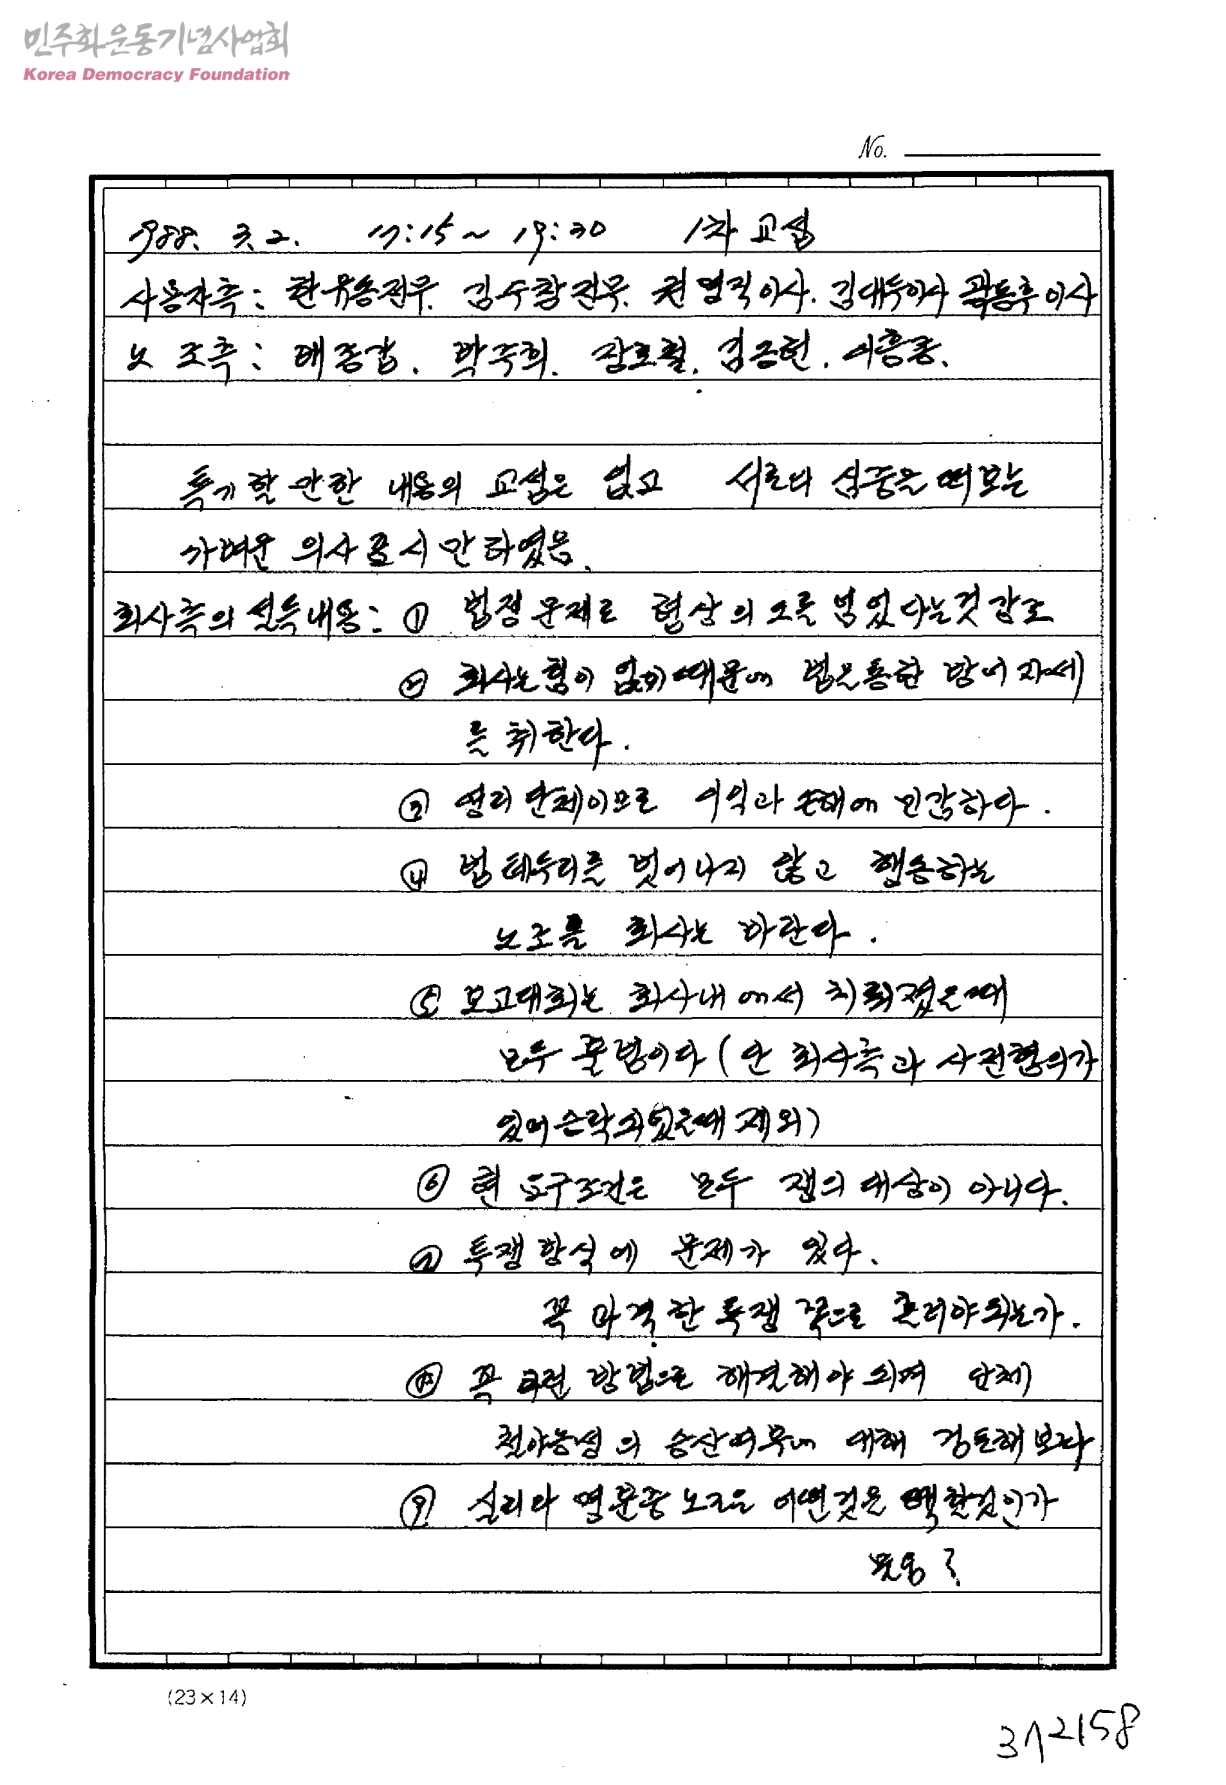 민주화운동기념사업회
Korea Democracy Foundation
No.
1988. 3. 2. 17:15~ 19:30 1차 교섭
사용자측: 한유동전무. 김수창전무. 권영직이사. 김대두이사 곽동후이사
노 조측: 배종갑. 박주희. 장호철. 김금헌. 이흥종.
특기할 만한 내용의 교섭은 없고 서로다 심중을 떠보는
가벼운 의사표시만 하였음.
회사측의 설득내용: ① 법정문제로 협상의 도를 넘었다는것 강조
② 회사는 힘이 없기 때문에 법을통한 방어 자세
를 취한다.
③ 영리단체이므로 이익과 손해에 민감하다.
④ 법 테두리를 벗어나지 않고 행동하는
노조를 회사는 바란다.
⑤ 보고대회는 회사내에서 치뤄졌을때
모두 불법이다 (단 회사측과 사전협의가
있어 승락되었을때 제외)
⑥ 현 요구조건은 모두 쟁의 대상이 아니다.
⑦ 투쟁방식에 문제가 있다.
꼭 과격한 투쟁 쪽으로 흘러야되는가.
⑧ 꼭 이런 방법으로 해결해야 되며 단체
철야농성의 승산여부에 대해 검토해보다
⑨ 실리와 명분중 노조은 어떤것을 택할것인가
물음?
(23×14)
372158